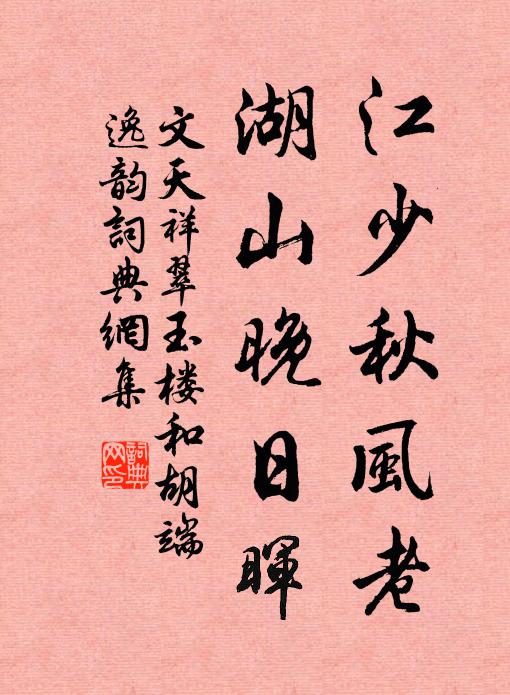 江少秋風老
湖山晚日暉
文天祥翠玉楼和胡端
逸韵詞典網集
詞典
网印